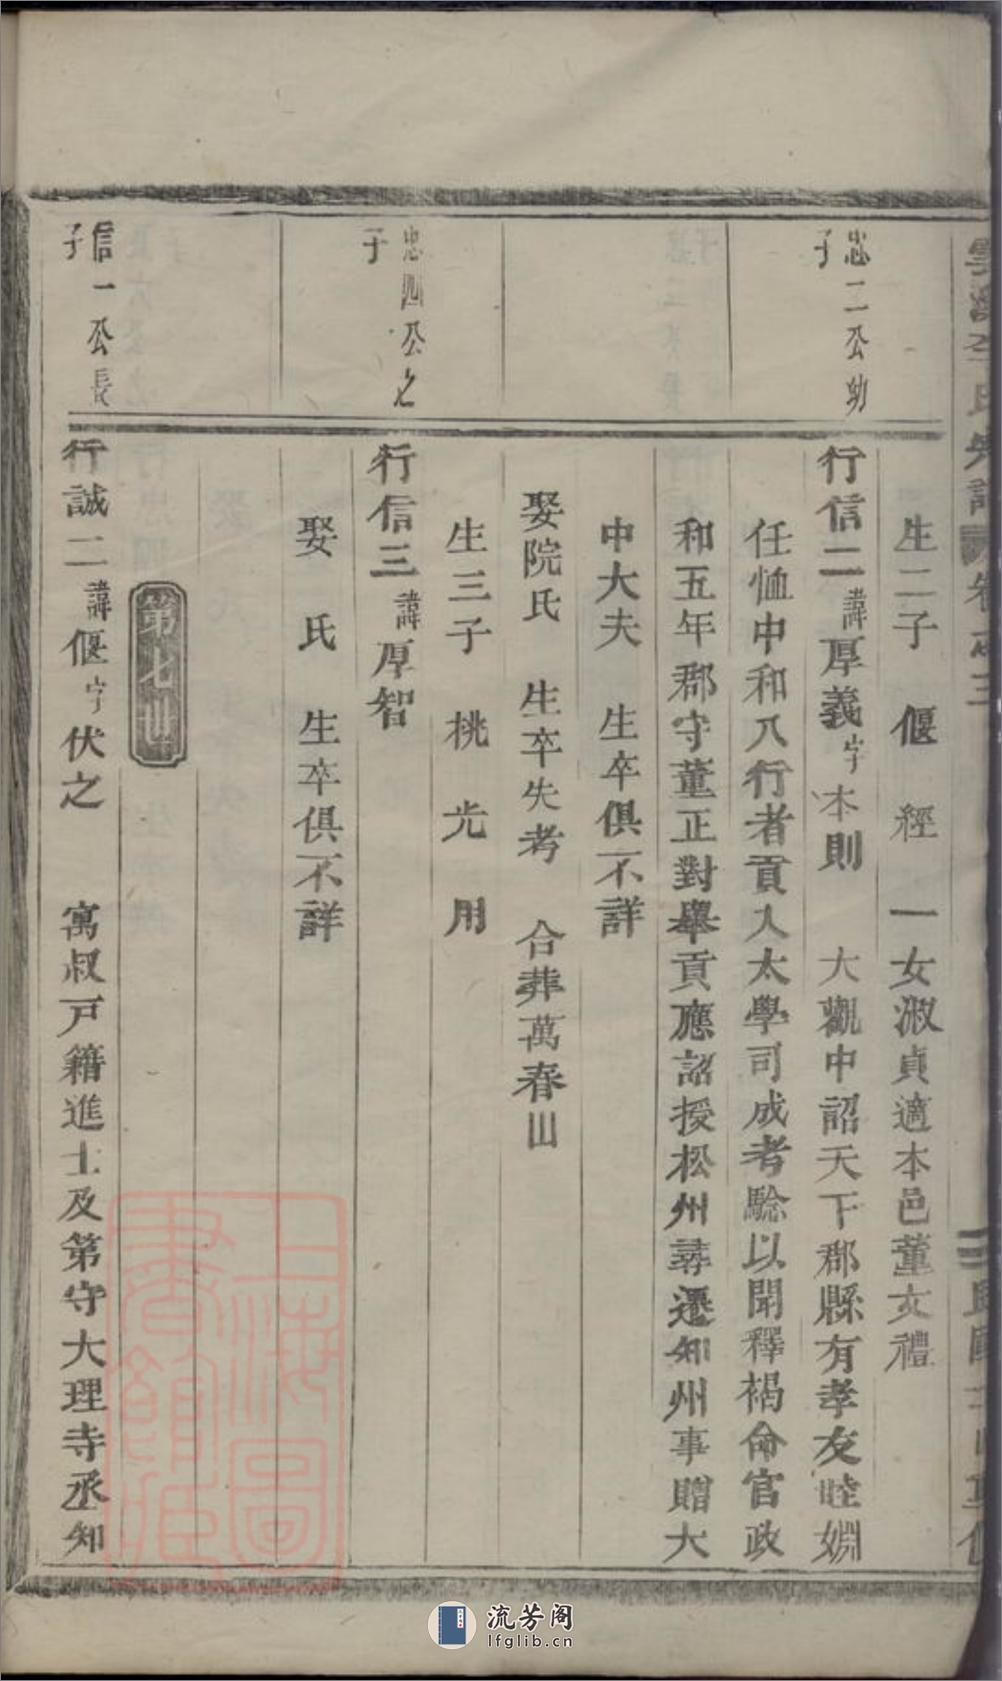 生二子　偃　經　一女淑貞適本邑董文禮
忠二公幼
子
行信二諱厚義字本則　大觀中詔天下郡縣有孝友睦婣
任恤中和八行者貢入太學司成考驗以聞釋褐命官政
和五年郡守董正對舉貢應詔授松州尋遷知州事贈大
中大夫　生卒俱不詳
娶院氏　生卒失考　合葬萬春山
生三子　桃　光　用
忠四公之
子
行信三諱厚智
娶　氏　生卒俱不詳
第七世
信一公長
子
行誠二諱偃字伏之　寓叔戸籍進士及第守大理寺丞知
上海圖書館藏
流芳阁
lfglib.cn